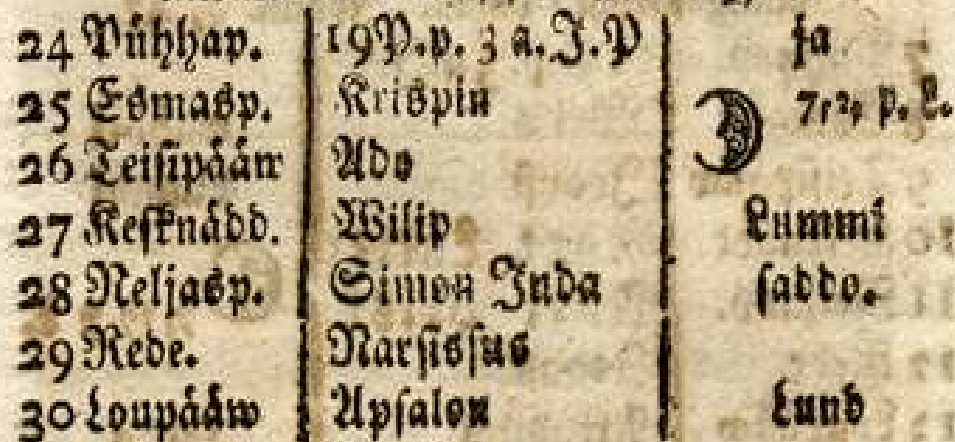 24 Pühhap. 19P.p. 3 a.J.P ja
25 Esmasp. Krispin 7, 24 p. L.
26 Teisipääw Ado
27 Kesknädd. Wilip Lummi
28 Neljasp. Simon Juda saddo.
29 Rede. Narsissus
30 Loupääw Apsalon Lund